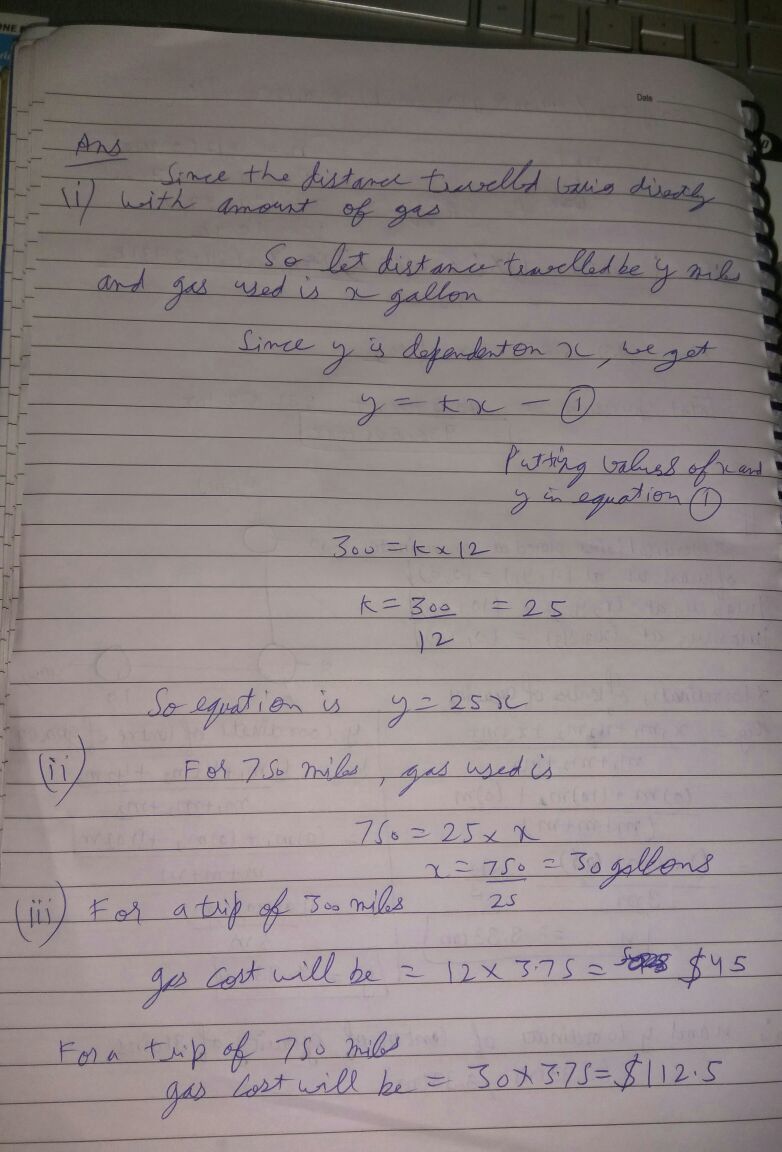 Date
Ans
Since the distance travelled varies directly
(i) with amount of gas
So let distance travelled be y miles
and gas used is x gallon
Since y is dependent on x, we get
y = kx - ①
Putting values of x and
y in equation ①
300 = k x 12
k = 300/12 = 25
So equation is y = 25x
(ii) For 750 miles, gas used is
750 = 25 x x
x = 750/25 = 30 gallons
(iii) For a trip of 300 miles
gas cost will be = 12 x 3.75 = $45
For a trip of 750 miles
gas cost will be = 30 x 3.75 = $112.5